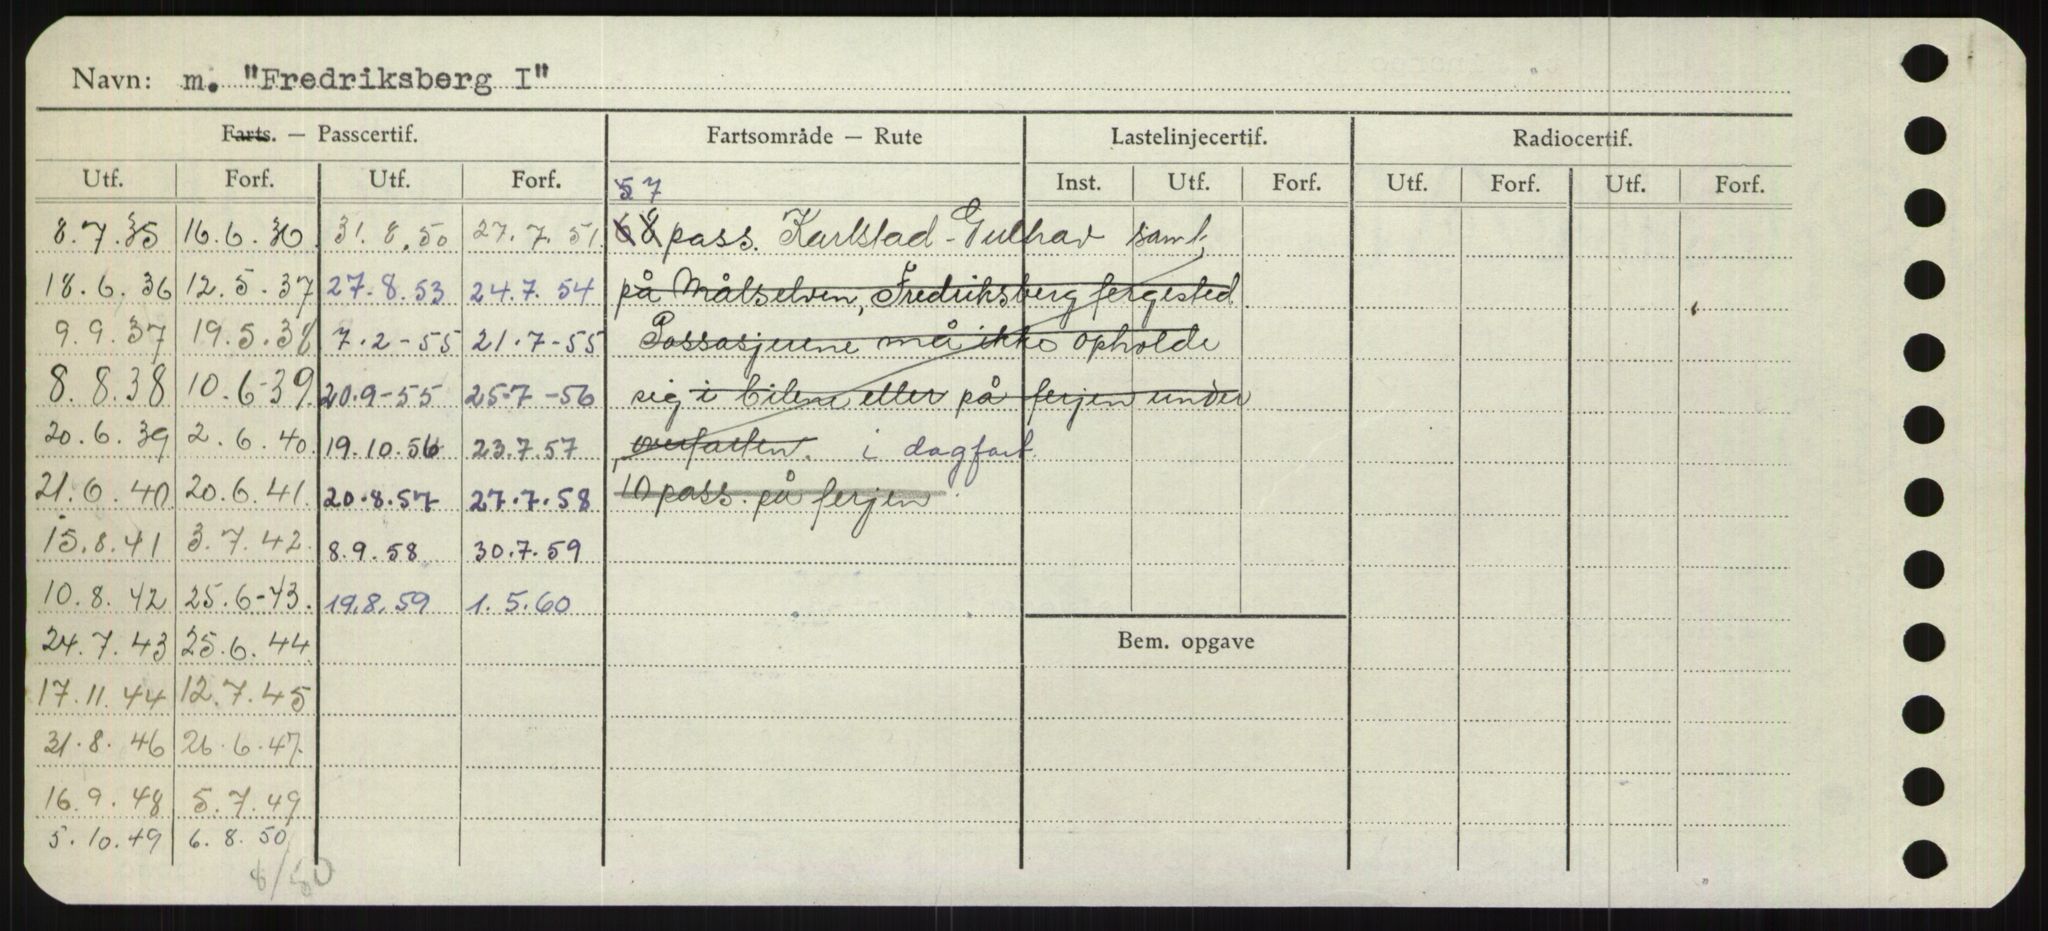 Navn: m. "Fredriksberg I"
Farts. — Passcertif. Fartsområde — Rute Lastelinjecertif. Radiocertif.
Utf. Forf. Utf. Forf. 57 Inst. Utf. Forf. Utf. Forf. Utf. Forf.
8.7.35 16.6.36 31.8.50 27.7.51 68 pass. Karlstad - Gulhav samt
18.6.36 12.5.37 27.8.53 24.7.54 på Målselven, Fredriksberg fergested.
9.9.37 19.5.38 7.2-55 21.7-55 Passasjerene må ikke opholde
8.8.38 10.6-39 20.9-55 25-7-56 sig i bilene eller på ferjen under
20.6.39 2.6.40 19.10.56 23.7.57 overfarten. i dagfart
21.6.40 20.6.41 20.8.57 27.7.58 10 pass. på ferjen
15.8.41 3.7.42 8.9.58 30.7.59
10.8.42 25.6-43. 19.8.59 1.5.60
24.7.43 25.6.44 Bem. opgave
17.11.44 12.7.45
31.8.46 26.6.47
16.9.48 5.7.49
5.10.49 6.8.50
8/50